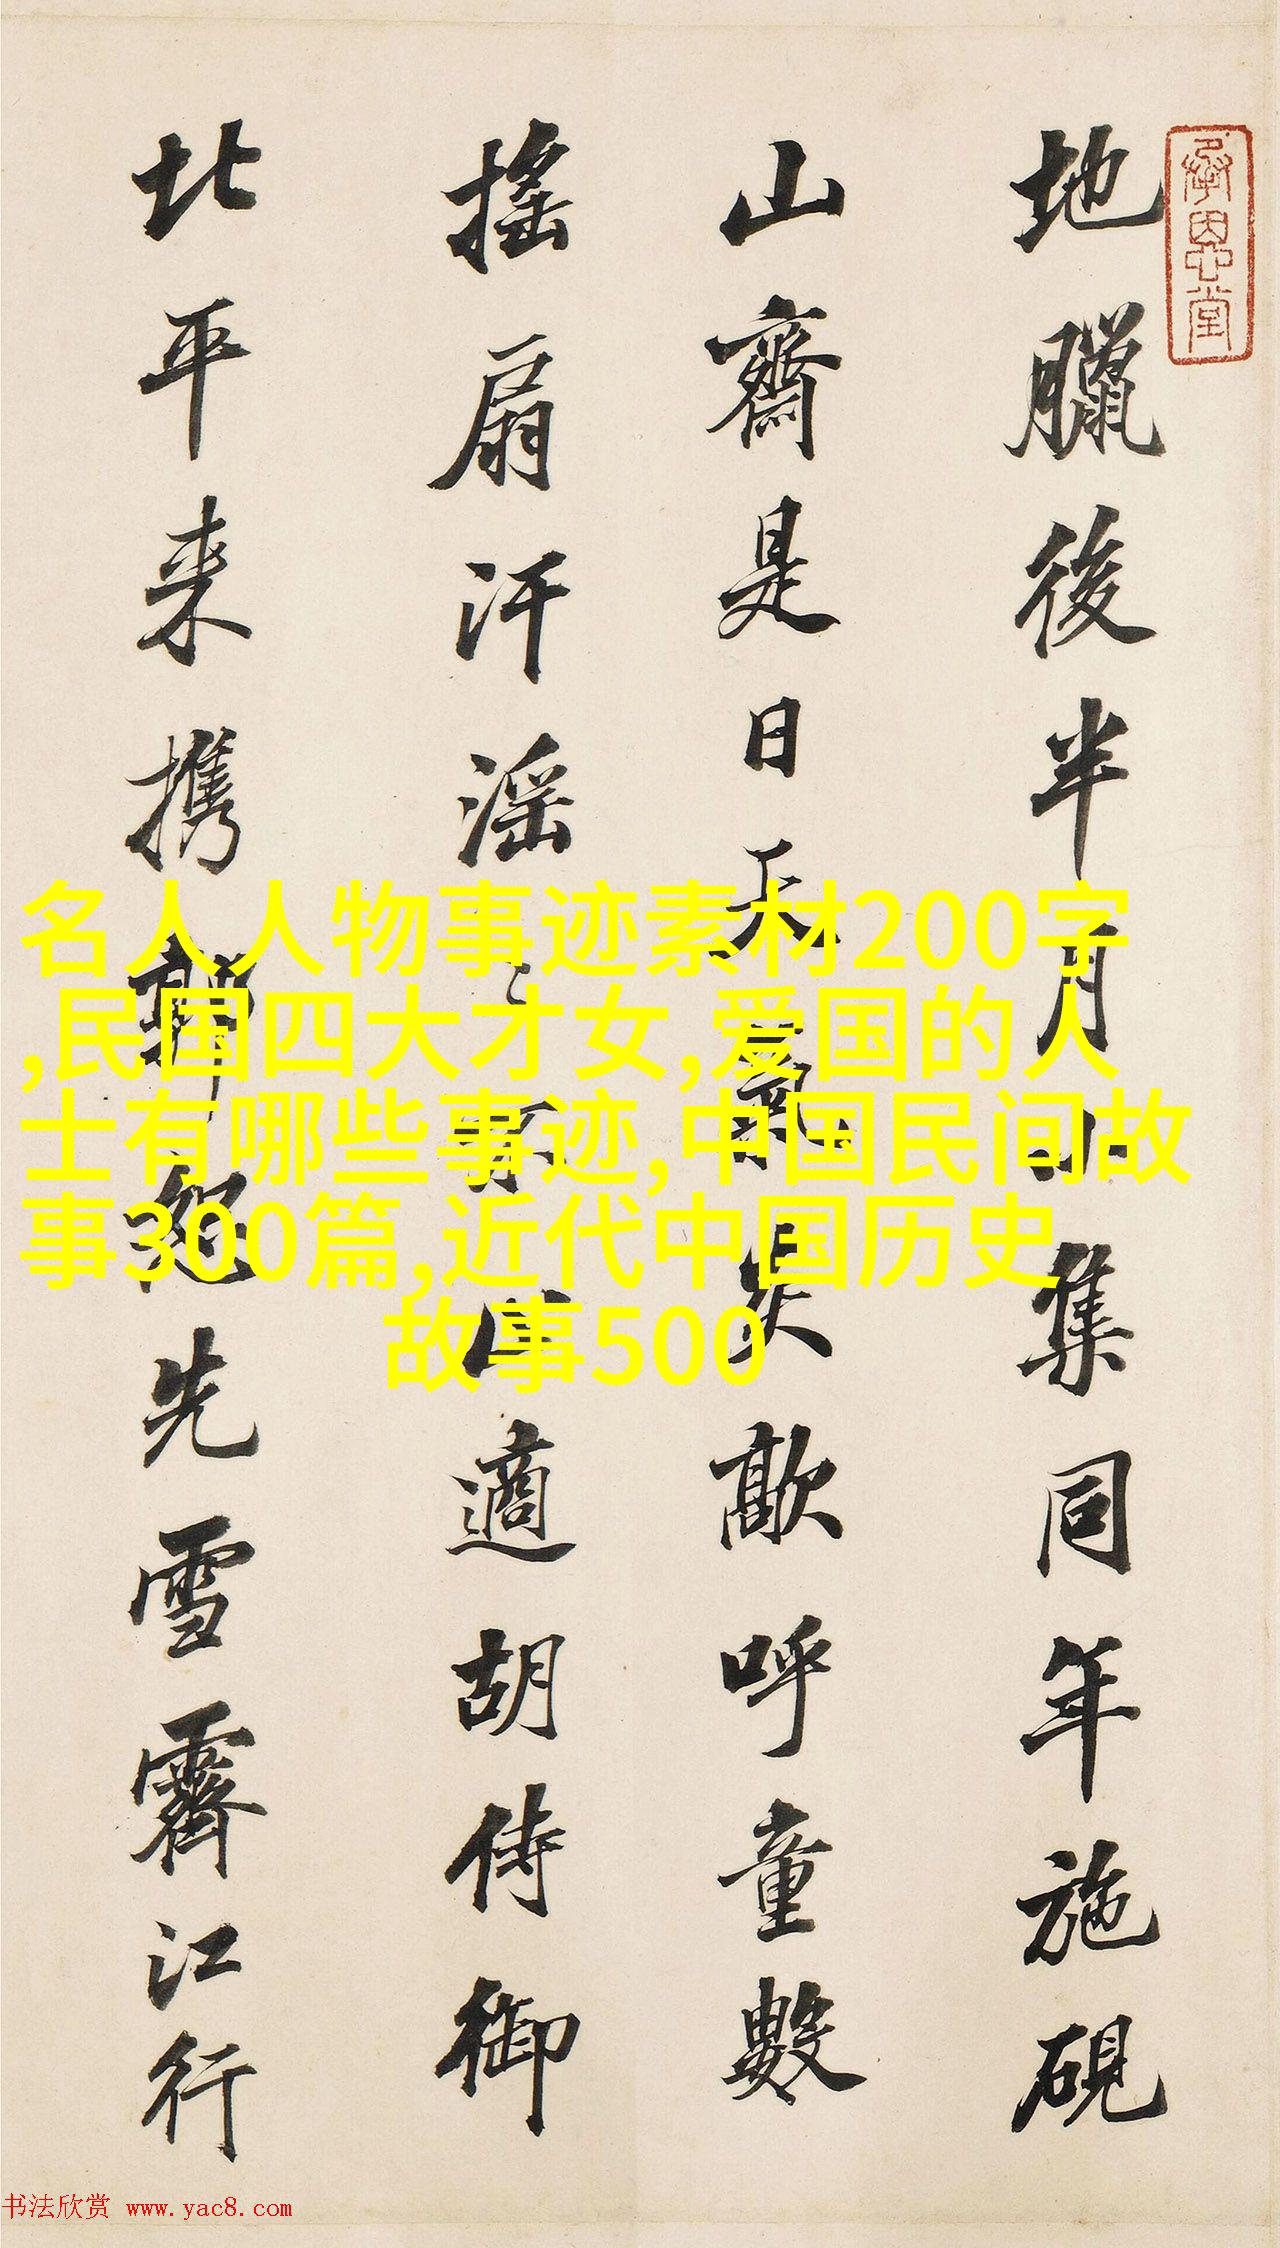 承恩堂
地臘後半月小集同年施硯
山齋是日天氣炎歊呼童數
搖扇汗滛〻不止適胡侍御
北平来携郭恕先雪霽江行
名人人物事迹素材200字
,民国四大才女,爱国的人
士有哪些事迹,中国民间故
事300篇,近代中国历史
故事500
书法欣赏 www.yac8.com